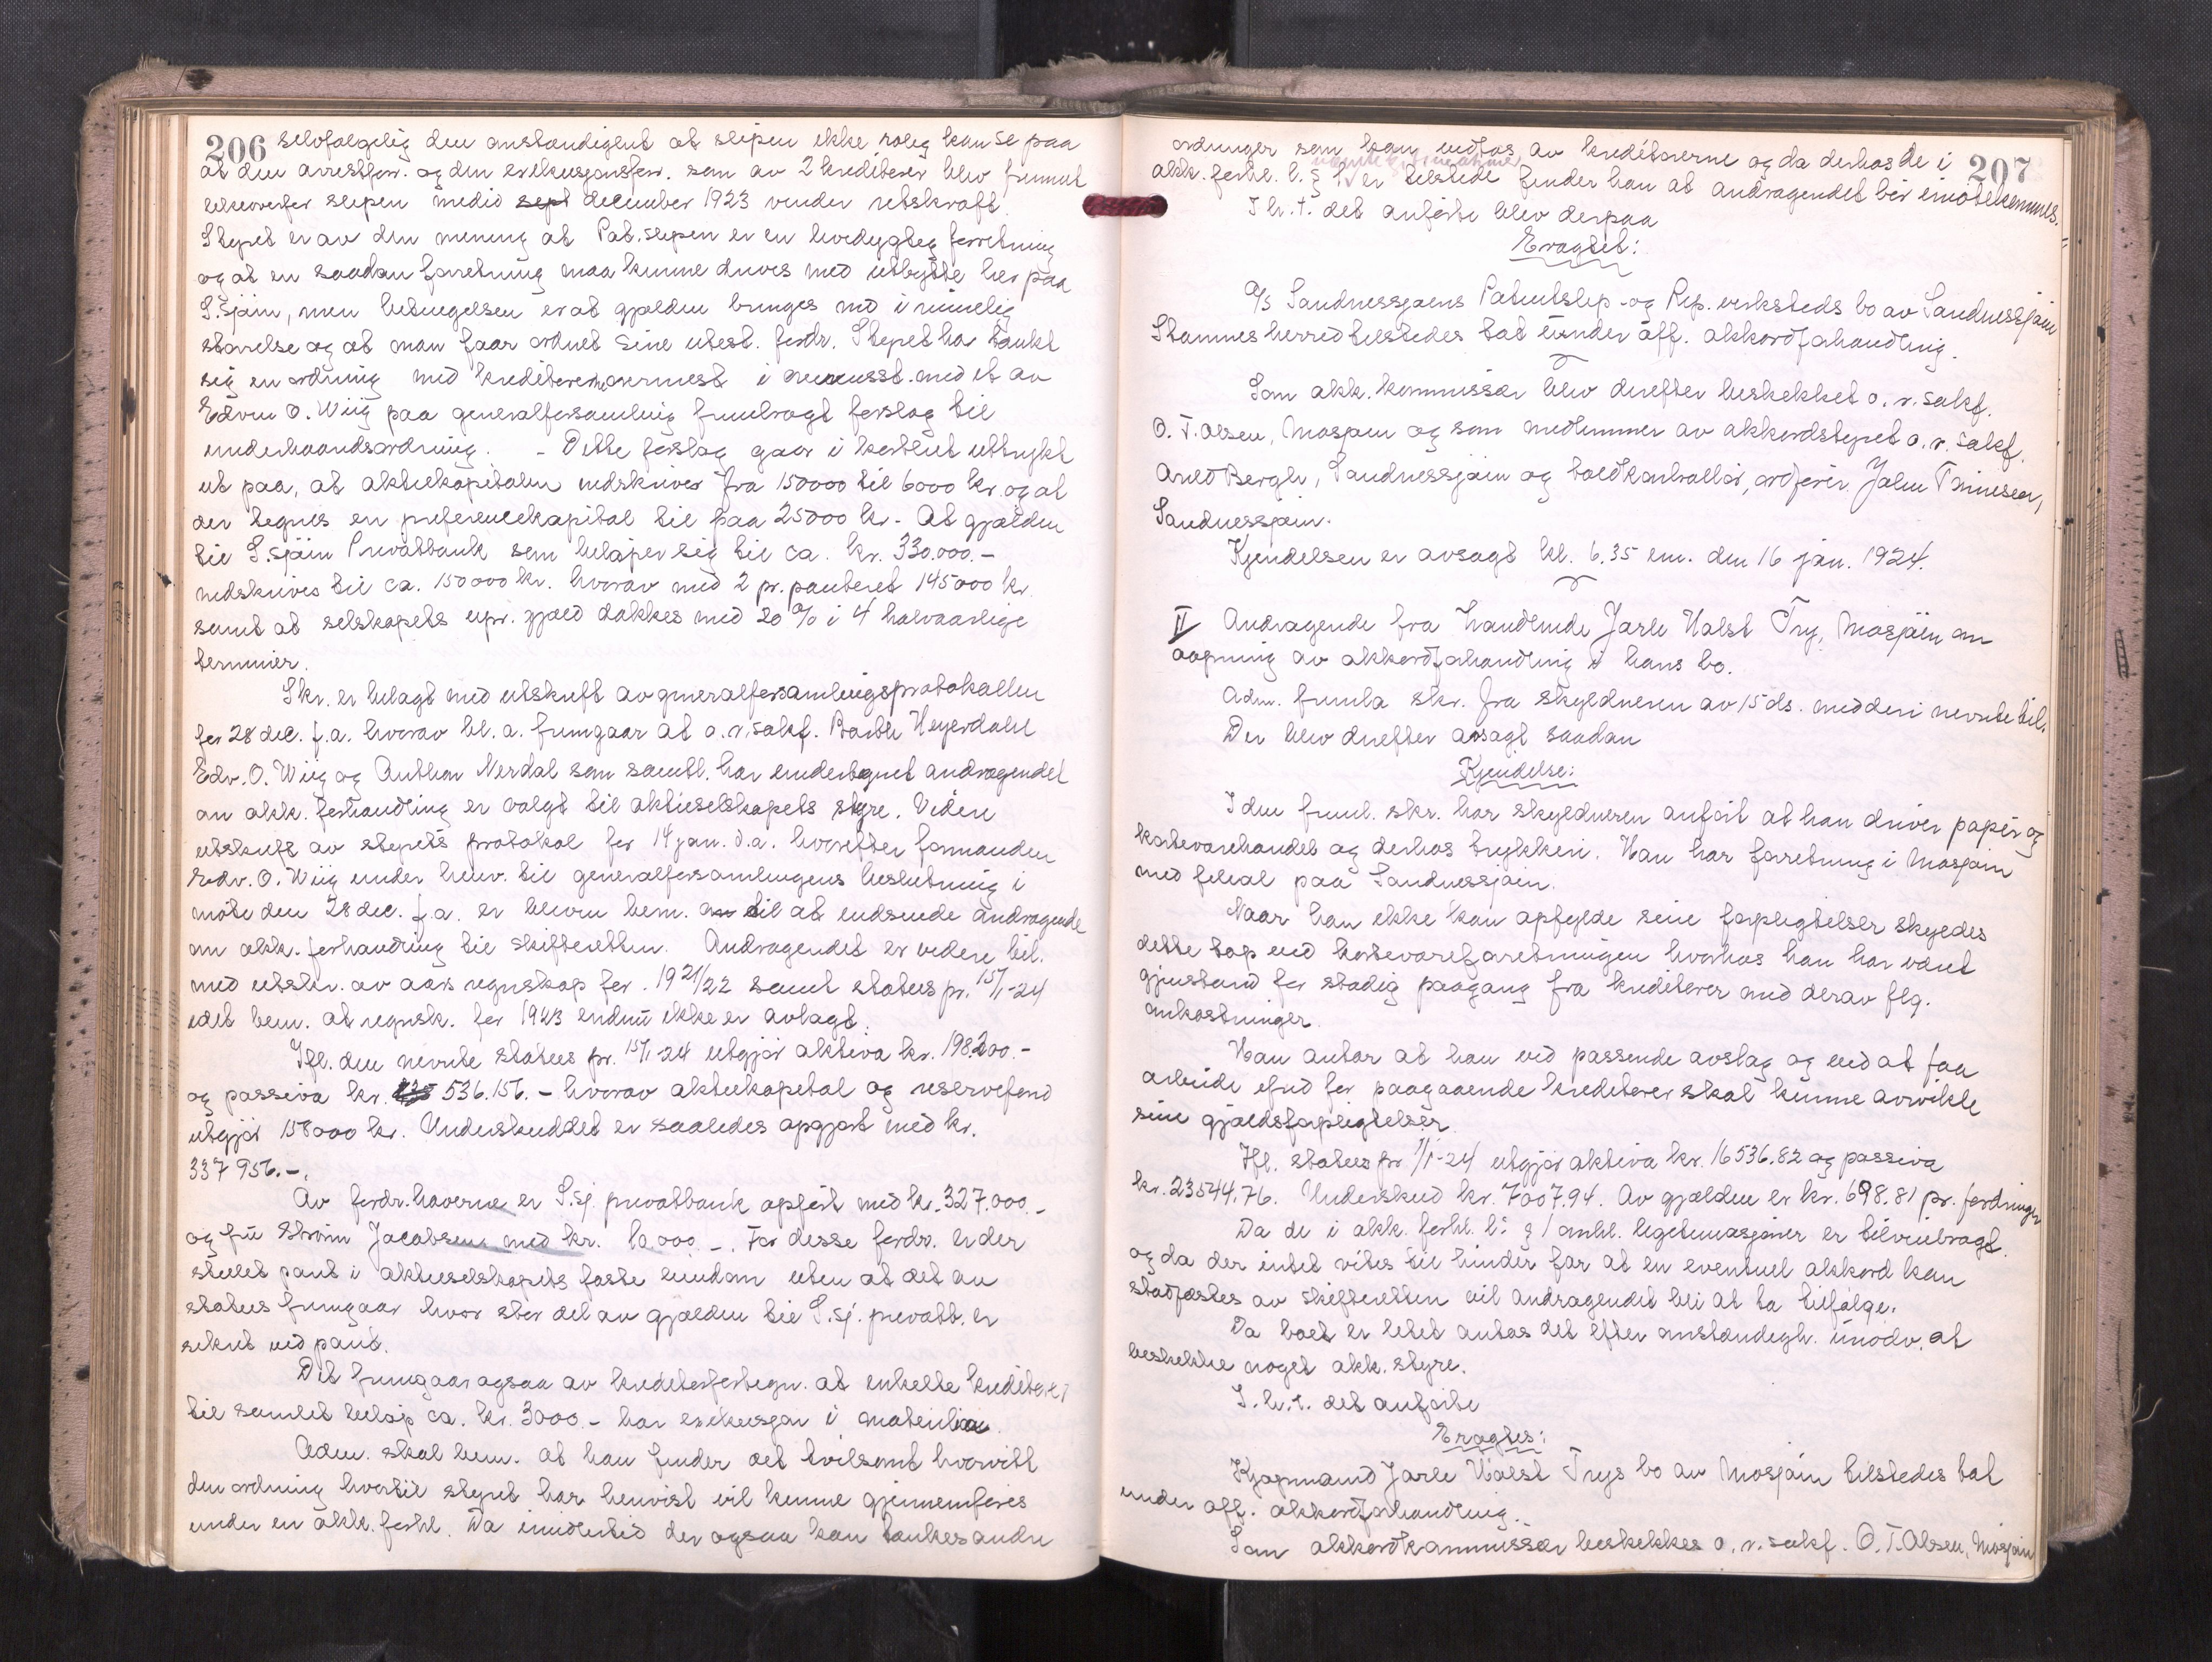 206 selvfølgelig den omstændighet at slipen ikke rolig kan se paa
at den arrestforr. og den exekusjonsforr. som av 2 kreditorer blev fremmet
likeoverfor slipen medio december 1923 vinder retskraft.
Styret er av den mening at Pat.slipen er en levedygtig forretning
og at en saadan forretning maa kunne drives med utbytte her paa
S.sjøen, men betingelsen er at gjælden bringes ned i rimelig
størrelse og at man faar ordnet sine utest. fordr. Styret har tænkt
sig en ordning med kreditorerne nærmest i med et av
Edvin O. Wiig paa generalforsamling fremlagt forslag til
underhaandsordning. - Dette forslag gaar i korthet uttrykt
ut paa, at aktiekapitalen nedskrives fra 150000 til 6000 kr. og at
der tegnes en preferencekapital til paa 25000 kr. - At gjælden
til S.sjøen Privatbank som beløper sig til ca. kr. 330.000.-
nedskrives til ca. 150000 kr. hvorav med 2 pr. panteret 145000 kr
samt at selskapets upr. gjæld dækkes med 20 % i 4 halvaarlige
terminer.
Skr. er bilagt med utskrift av generalforsamlingsprotokollen
for 28 dec. f.a. hvorav bl.a. fremgaar at o.r.sakf. Barth Heyerdahl
Edv. O. Wiig og Anthon Nerdal som samtl. har undertegnet andragendet
om akk. forhandling er valgt til aktieselskapets styre. Videre
utskrift av styrets protokol for 14 jan. d.a. hvorefter formanden
Edv. O. Wiig under henv. til generalforsamlingens beslutning i
møte den 28 dec. f.a. er bleven bem. til at indsende andragende
om akk. forhandling til skifteretten. Andragendet er videre bil.
med utskr. av aars regnskap for 1921/22 samt status pr. 15/1-24
idet bem. at regnsk. for 1923 endnu ikke er avlagt.
Ifl. den nevnte status pr. 15/1-24 utgjør aktiva kr. 198.200.-
og passiva kr. 536.156.- hvorav aktiekapital og reservefond
utgjør 158000 kr. Underskuddet er saaledes opgjort med kr.
337 956.-.
Av fordr.haverne er S.sj. privatbank opført med kr. 327.000.-
og fru Strøm Jacobsen med kr. 10.000.-. For disse fordr. er der
stillet pant i aktieselskapets faste eiendom uten at det av
status fremgaar hvor stor del av gjælden til S.sj. privatb. er
sikret ved pant.
Det fremgaar ogsaa av kreditorfortegn. at enkelte kreditorer
til samlet beløp ca. kr. 3000.- har exekusjon i
Adm. skal bem. at han finder det tvilsomt hvorvidt
den ordning hvortil styret har henvist vil kunne gjennemføres
under en akk. forhl. Da imidlertid der ogsaa kan tænkes andre
207
ordninger som kan vedtas av kreditorerne og da derhos de i
akk. forhl. l. § 1 er tilstede finder han at andragendet bør imøtekommes.
I h.t. det anførte blev derpaa
Eragtet:
A/S Sandnessjøens Patentslip- og Rep. verksteds bo av Sandnessjøen
Stamnes herred tilstedes tat under off. akkordforhandling.
Som akk. kommissær blev derefter beskikket o.r.sakf.
O. T. Olsen, Mosjøen og som medlemmer av akkordstyret o.r. sakf.
Arild Bergh, Sandnessjøen og toldkontrollør, ordfører Johan Tønnesen,
Sandnessjøen.
Kjendelsen er avsagt kl. 6.35 em. den 16 jan. 1924.
II Andragende fra handlende Jarle Holst Try, Mosjøen om
aapning av akkordforhandling i hans bo.
Adm. fremla skr. fra skyldneren av 15 ds. med deri nevnte bil.
Der blev derefter avsagt saadan
Kjendelse:
I den freml. skr. har skyldneren anført at han driver papir og
kortevarehandel og derhos trykkeri. Han har forretning i Mosjøen
med filial paa Sandnessjøen.
Naar han ikke kan opfylde sine forpligtelser skyldes
dette tap ved kortevareforretningen hvorhos han har været
gjenstand for stadig paagang fra kreditorer med derav flg.
omkostninger.
Han antar at han ved passende avslag og ved at faa
arbeide i fred for paagaaende kreditorer skal kunne avvikle
sine gjældsforpligtelser.
Ifl. status pr 1/1-24 utgjør aktiva kr. 16536.82 og passiva
kr. 23544.76. Underskud kr. 7007.94. Av gjælden er kr. 698.81 pr. fordringer
Da de i akk. forhl. l: § 1 omhl. legitimasjoner er tilveiebragt
og da der intet vites til hinder for at en eventuel akkord kan
stadfæstes av skifteretten vil andragendet bli at ta tilfølge.
Da boet er litet antas det efter omstændigh. unødv. at
beskikke noget akk. styre.
I h.t. det anførte
Eragtes:
Kjøpmand Jarle Holst Trys bo av Mosjøen tilstedes tat
under off. akkordforhandling.
Som akkordkommissær beskikkes o.r.sakf. O. T. Olsen, Mosjøen